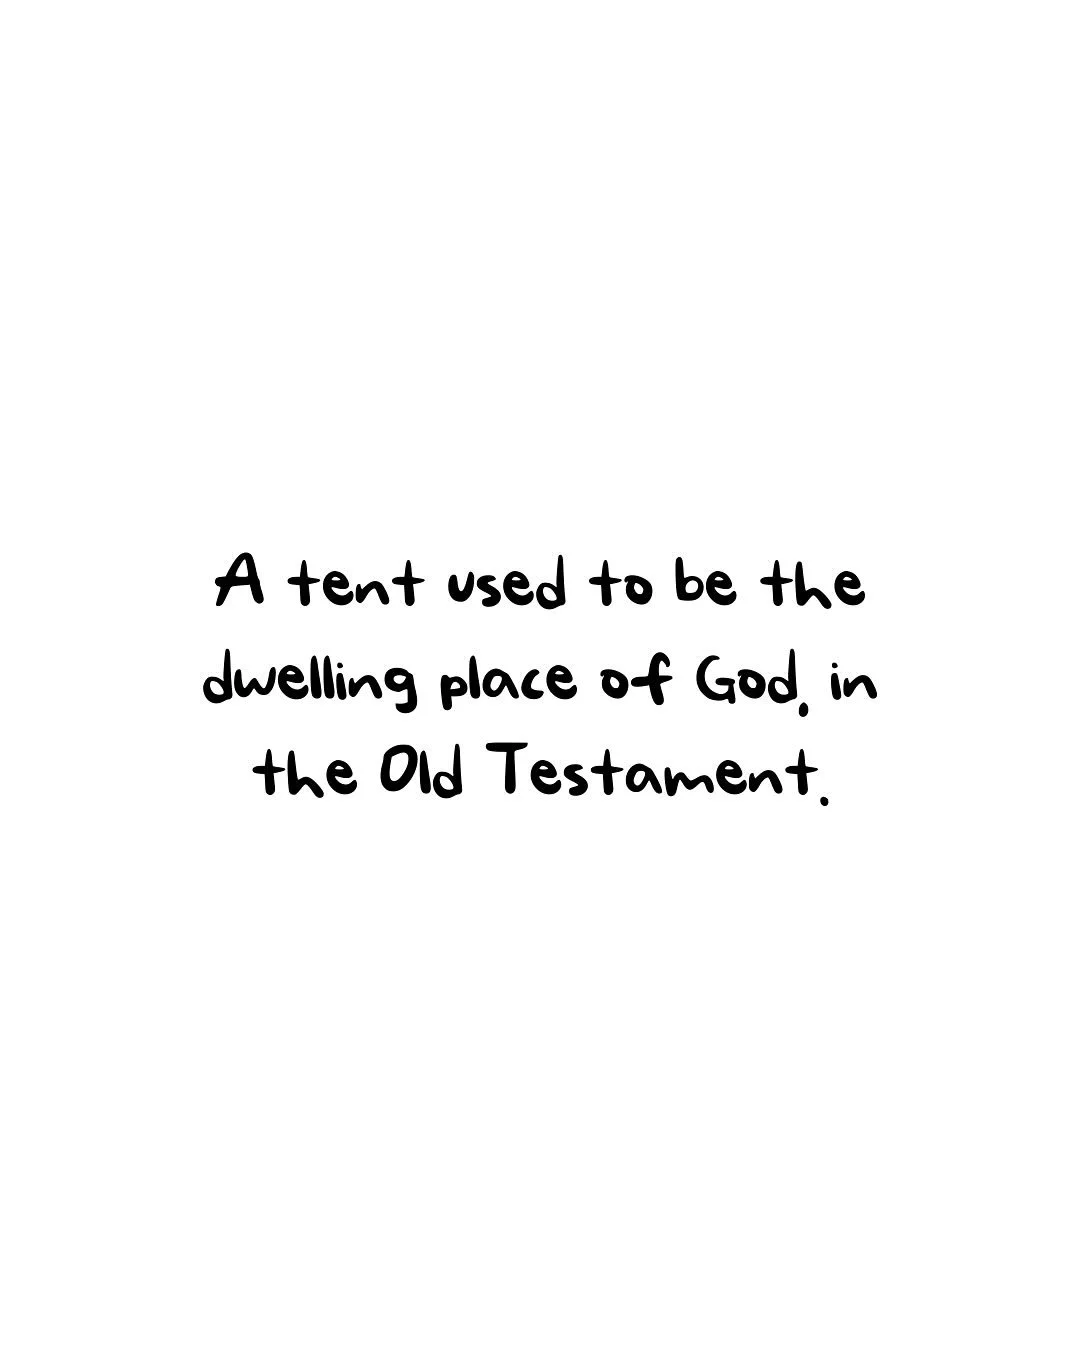 A tent used to be the
dwelling place of God, in
the Old Testament.